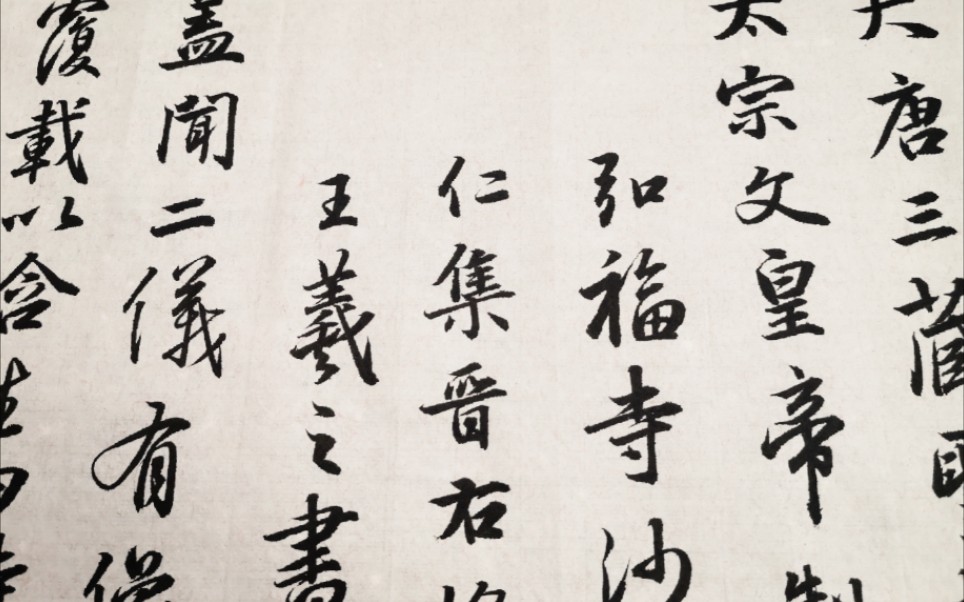 大唐三藏
太宗文皇帝制
弘福寺沙
仁集晉右將
王羲之書
蓋聞二儀有像
覆載以含生